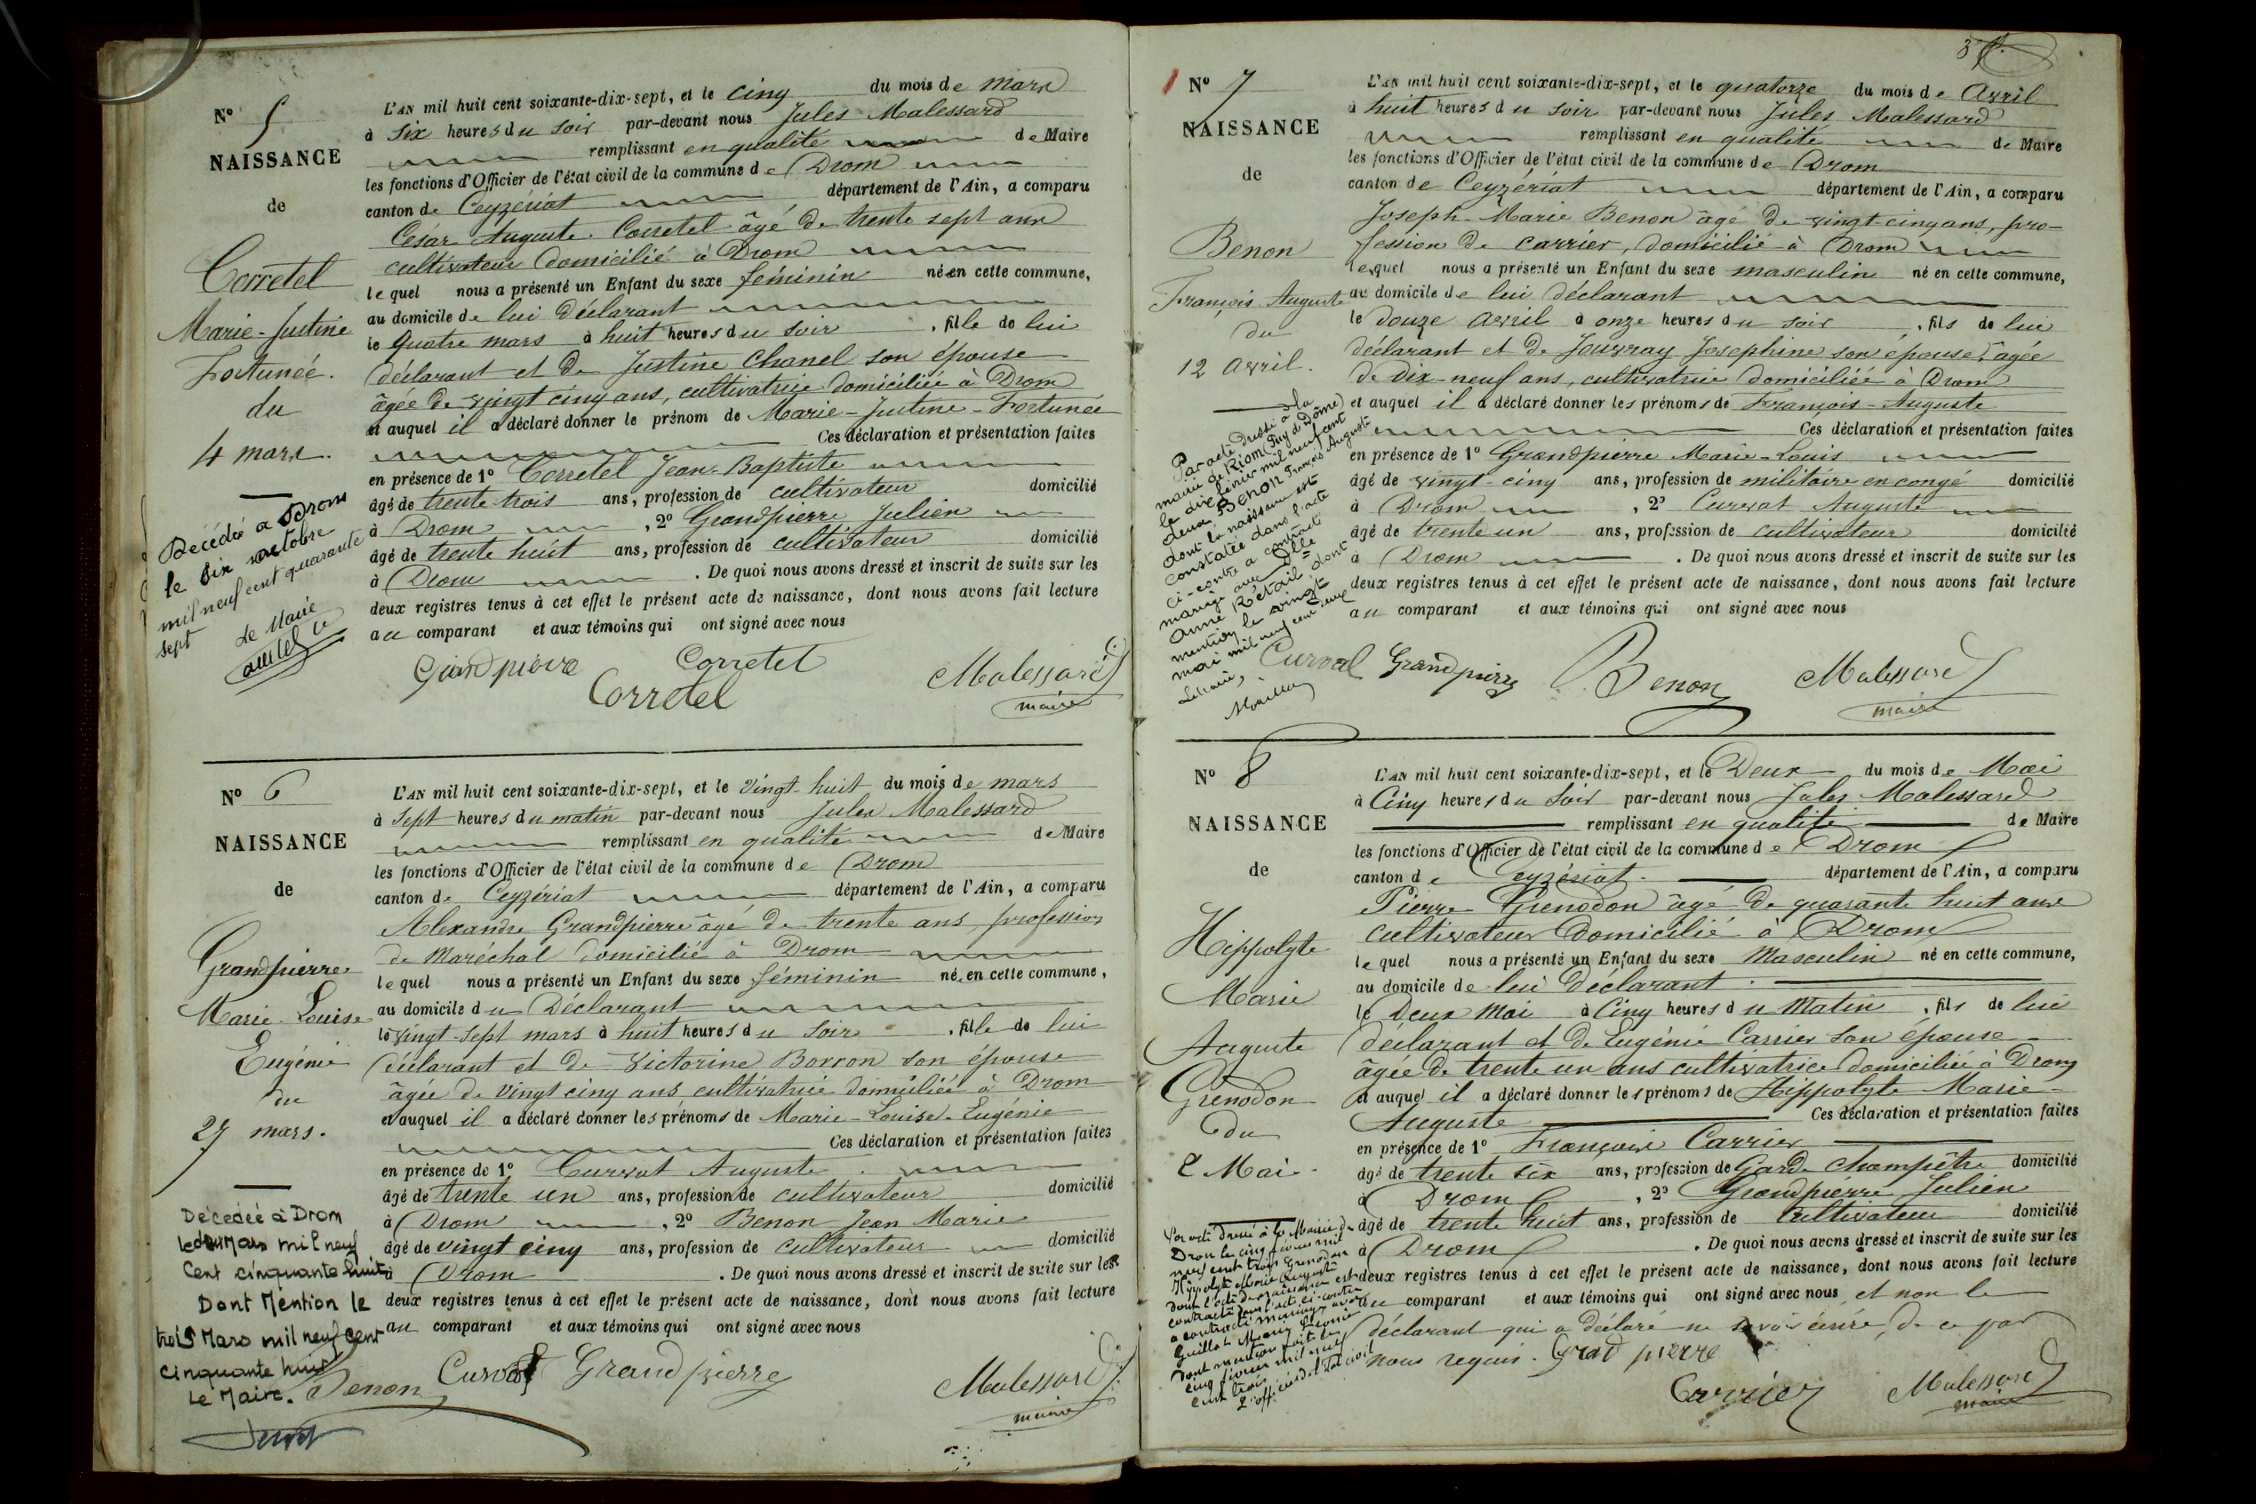 N° 5
NAISSANCE
de
Corretel
Marie-Justine
Fortunée.
du
4 mars.
Décédée à Drom
le dix octobre
mil neuf cent quarante
sept
Le Maire
L'AN mil huit cent soixante-dix-sept, et le cinq du mois de mars
à six heures du soir par-devant nous Jules Malessard
remplissant en qualité de Maire
les fonctions d'Officier de l'état civil de la commune de Drom
canton de Ceyzériat département de l'Ain, a comparu
César Auguste Corretel âgé de trente sept ans
cultivateur domicilié à Drom
lequel nous a présenté un Enfant du sexe féminin né en cette commune,
au domicile de lui déclarant
le quatre mars à huit heures du soir, fille de lui
déclarant et de Justine Chanel son épouse
âgée de vingt cinq ans, cultivatrice domiciliée à Drom
et auquel il a déclaré donner le prénom de Marie-Justine-Fortunée
Ces déclaration et présentation faites
en présence de 1° Corretel Jean-Baptiste
âgé de trente trois ans, profession de cultivateur domicilié
à Drom, 2° Grandpierre Julien
âgé de trente huit ans, profession de cultivateur domicilié
à Drom. De quoi nous avons dressé et inscrit de suite sur les
deux registres tenus à cet effet le présent acte de naissance, dont nous avons fait lecture
au comparant et aux témoins qui ont signé avec nous
Grandpierre Corretel Malessard
Corretel maire
N° 6
NAISSANCE
de
Grandpierre
Marie-Louise
Eugénie
du
27 mars.
Décédée à Drom
le deux Mars mil neuf
Cent cinquante huit
Dont Mention le
trois Mars mil neuf cent
cinquante huit
Le Maire.
L'AN mil huit cent soixante-dix-sept, et le vingt-huit du mois de mars
à sept heures du matin par-devant nous Jules Malessard
remplissant en qualité de Maire
les fonctions d'Officier de l'état civil de la commune de Drom
canton de Ceyzériat département de l'Ain, a comparu
Alexandre Grandpierre âgé de trente ans, profession
de Maréchal domicilié à Drom
lequel nous a présenté un Enfant du sexe féminin né en cette commune,
au domicile du Déclarant
le vingt-sept mars à huit heures du soir, fille de lui
déclarant et de Victorine Borron son épouse
âgée de vingt cinq ans cultivatrice domiciliée à Drom
et auquel il a déclaré donner les prénoms de Marie-Louise-Eugénie
Ces déclaration et présentation faites
en présence de 1° Curvat Auguste
âgé de trente un ans, profession de cultivateur domicilié
à Drom, 2° Benon Jean Marie
âgé de vingt cinq ans, profession de cultivateur domicilié
à Drom. De quoi nous avons dressé et inscrit de suite sur les
deux registres tenus à cet effet le présent acte de naissance, dont nous avons fait lecture
au comparant et aux témoins qui ont signé avec nous
Benon Curvat Grandpierre Malessard
maire
N° 7
NAISSANCE
de
Benon
François Auguste
du
12 avril.
Par acte dressé à la
mairie de Riom (Puy de Dôme)
le dix février mil neuf cent
deux Benon François Auguste
dont la naissance est
constatée dans l'acte
ci-contre a contracté
mariage avec Dlle
Anne Rétail dont
mention le vingt
mai mil neuf cent deux
Le Maire,
L'AN mil huit cent soixante-dix-sept, et le quatorze du mois de Avril
à huit heures du soir par-devant nous Jules Malessard
remplissant en qualité de Maire
les fonctions d'Officier de l'état civil de la commune de Drom
canton de Ceyzériat département de l'Ain, a comparu
Joseph-Marie Benon âgé de vingt cinq ans, pro-
fession de carrier, domicilié à Drom
lequel nous a présenté un Enfant du sexe masculin né en cette commune,
au domicile de lui déclarant
le douze avril à onze heures du soir, fils de lui
déclarant et de Jouvray Josephine son épouse, âgée
de dix-neuf ans, cultivatrice domiciliée à Drom
et auquel il a déclaré donner les prénoms de François-Auguste
Ces déclaration et présentation faites
en présence de 1° Grandpierre Marie-Louis
âgé de vingt-cinq ans, profession de militaire en congé domicilié
à Drom, 2° Curvat Auguste
âgé de trente un ans, profession de cultivateur domicilié
à Drom. De quoi nous avons dressé et inscrit de suite sur les
deux registres tenus à cet effet le présent acte de naissance, dont nous avons fait lecture
au comparant et aux témoins qui ont signé avec nous
Curvat Grandpierre Benon Malessard
maire
N° 8
NAISSANCE
de
Hippolyte
Marie
Auguste
Grenodon
du
2 Mai.
Par acte dressé à la Mairie de
Drom le cinq février mil
neuf cent trois Grenodon
Hippolyte Marie Auguste
dont l'acte de naissance est
contracté dans l'acte ci-contre
a contracté mariage avec
Guillot Marie
dont mention faite le
cinq février mil neuf
cent trois
L'officier de l'Etat civil
L'AN mil huit cent soixante-dix-sept, et le Deux du mois de Mai
à Cinq heures du Soir par-devant nous Jules Malessard
remplissant en qualité de Maire
les fonctions d'Officier de l'état civil de la commune de Drom
canton de Ceyzériat. département de l'Ain, a comparu
Pierre Grenodon âgé de quarante huit ans
cultivateur domicilié à Drom
lequel nous a présenté un Enfant du sexe Masculin né en cette commune,
au domicile de lui Déclarant.
le Deux Mai à Cinq heures du Matin, fils de lui
déclarant et de Eugénie Carrier son épouse
âgée de trente un ans cultivatrice domiciliée à Drom
et auquel il a déclaré donner les prénoms de Hippolyte Marie
Auguste Ces déclaration et présentation faites
en présence de 1° François Carrier
âgé de trente six ans, profession de Garde champêtre domicilié
à Drom, 2° Grandpierre Julien
âgé de trente huit ans, profession de Cultivateur domicilié
à Drom. De quoi nous avons dressé et inscrit de suite sur les
deux registres tenus à cet effet le présent acte de naissance, dont nous avons fait lecture
au comparant et aux témoins qui ont signé avec nous, et non le
déclarant qui a déclaré ne savoir écrire, de ce par
nous requis. Grad pierre
Carrier Malessard
maire